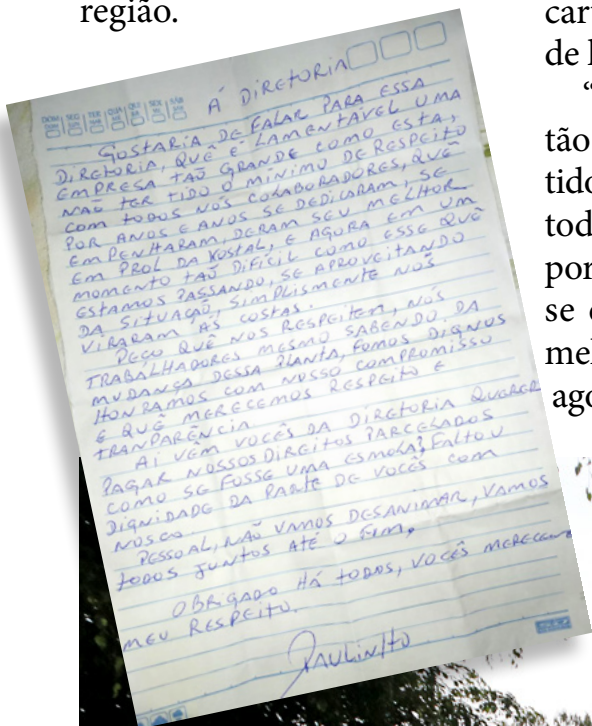 região.
À DIRETORIA
DOM SEG TER QUA QUI SEX SAB
GOSTARIA DE FALAR PARA ESSA
DIRETORIA, QUÊ É LAMENTÁVEL UMA
EMPRESA TAÕ GRANDE COMO ESTA,
NAÕ TER TIDO O MÍNIMO DE RESPEITO
COM TODOS NÓS COLABORADORES, QUÊ
POR ANOS E ANOS SE DEDICARAM, SE
EMPENHARAM, DERAM SEU MELHOR
EM PROL DA KOSTAL, E AGORA EM UM
MOMENTO TAÕ DIFÍCIL COMO ESSE QUÊ
ESTAMOS PASSANDO, SE APROVEITANDO
DA SITUAÇÃO, SIMPLISMENTE NOS
VIRARAM AS COSTAS.
PEÇO QUÊ NOS RESPEITEM, NÓS
TRABALHADORES MESMO SABENDO DA
MUDANÇA DESSA PLANTA, FOMOS DIGNOS
HONRAMOS COM NOSSO COMPROMISSO
E QUÊ MERECEMOS RESPEITO E
TRANPARÊNCIA
AÍ VEM VOCÊS DA DIRETORIA QUERER
PAGAR NOSSOS DIREITOS PARCELADOS
COMO SE FOSSE UMA ESMOLA, FALTOU
DIGNIDADE DA PARTE DE VOCÊS COM
NOSCO.
PESSOAL, NAÕ VAMOS DESANIMAR, VAMOS
TODOS JUNTOS ATÉ O FIM,
OBRIGADO HÁ TODOS, VOCÊS MERECEM
MEU RESPEITO.
PAULINHO
de
“
tão
tido
tod
por
se
mel
ago